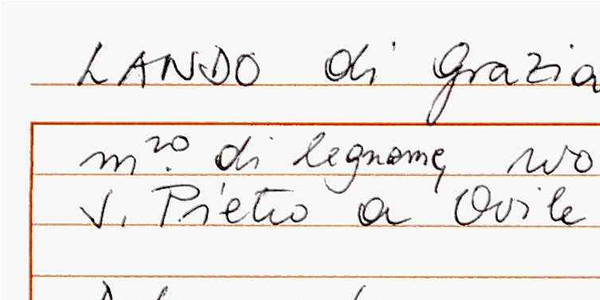 LANDO di Grazia
m.ro di legname,
S. Pietro a Ovile